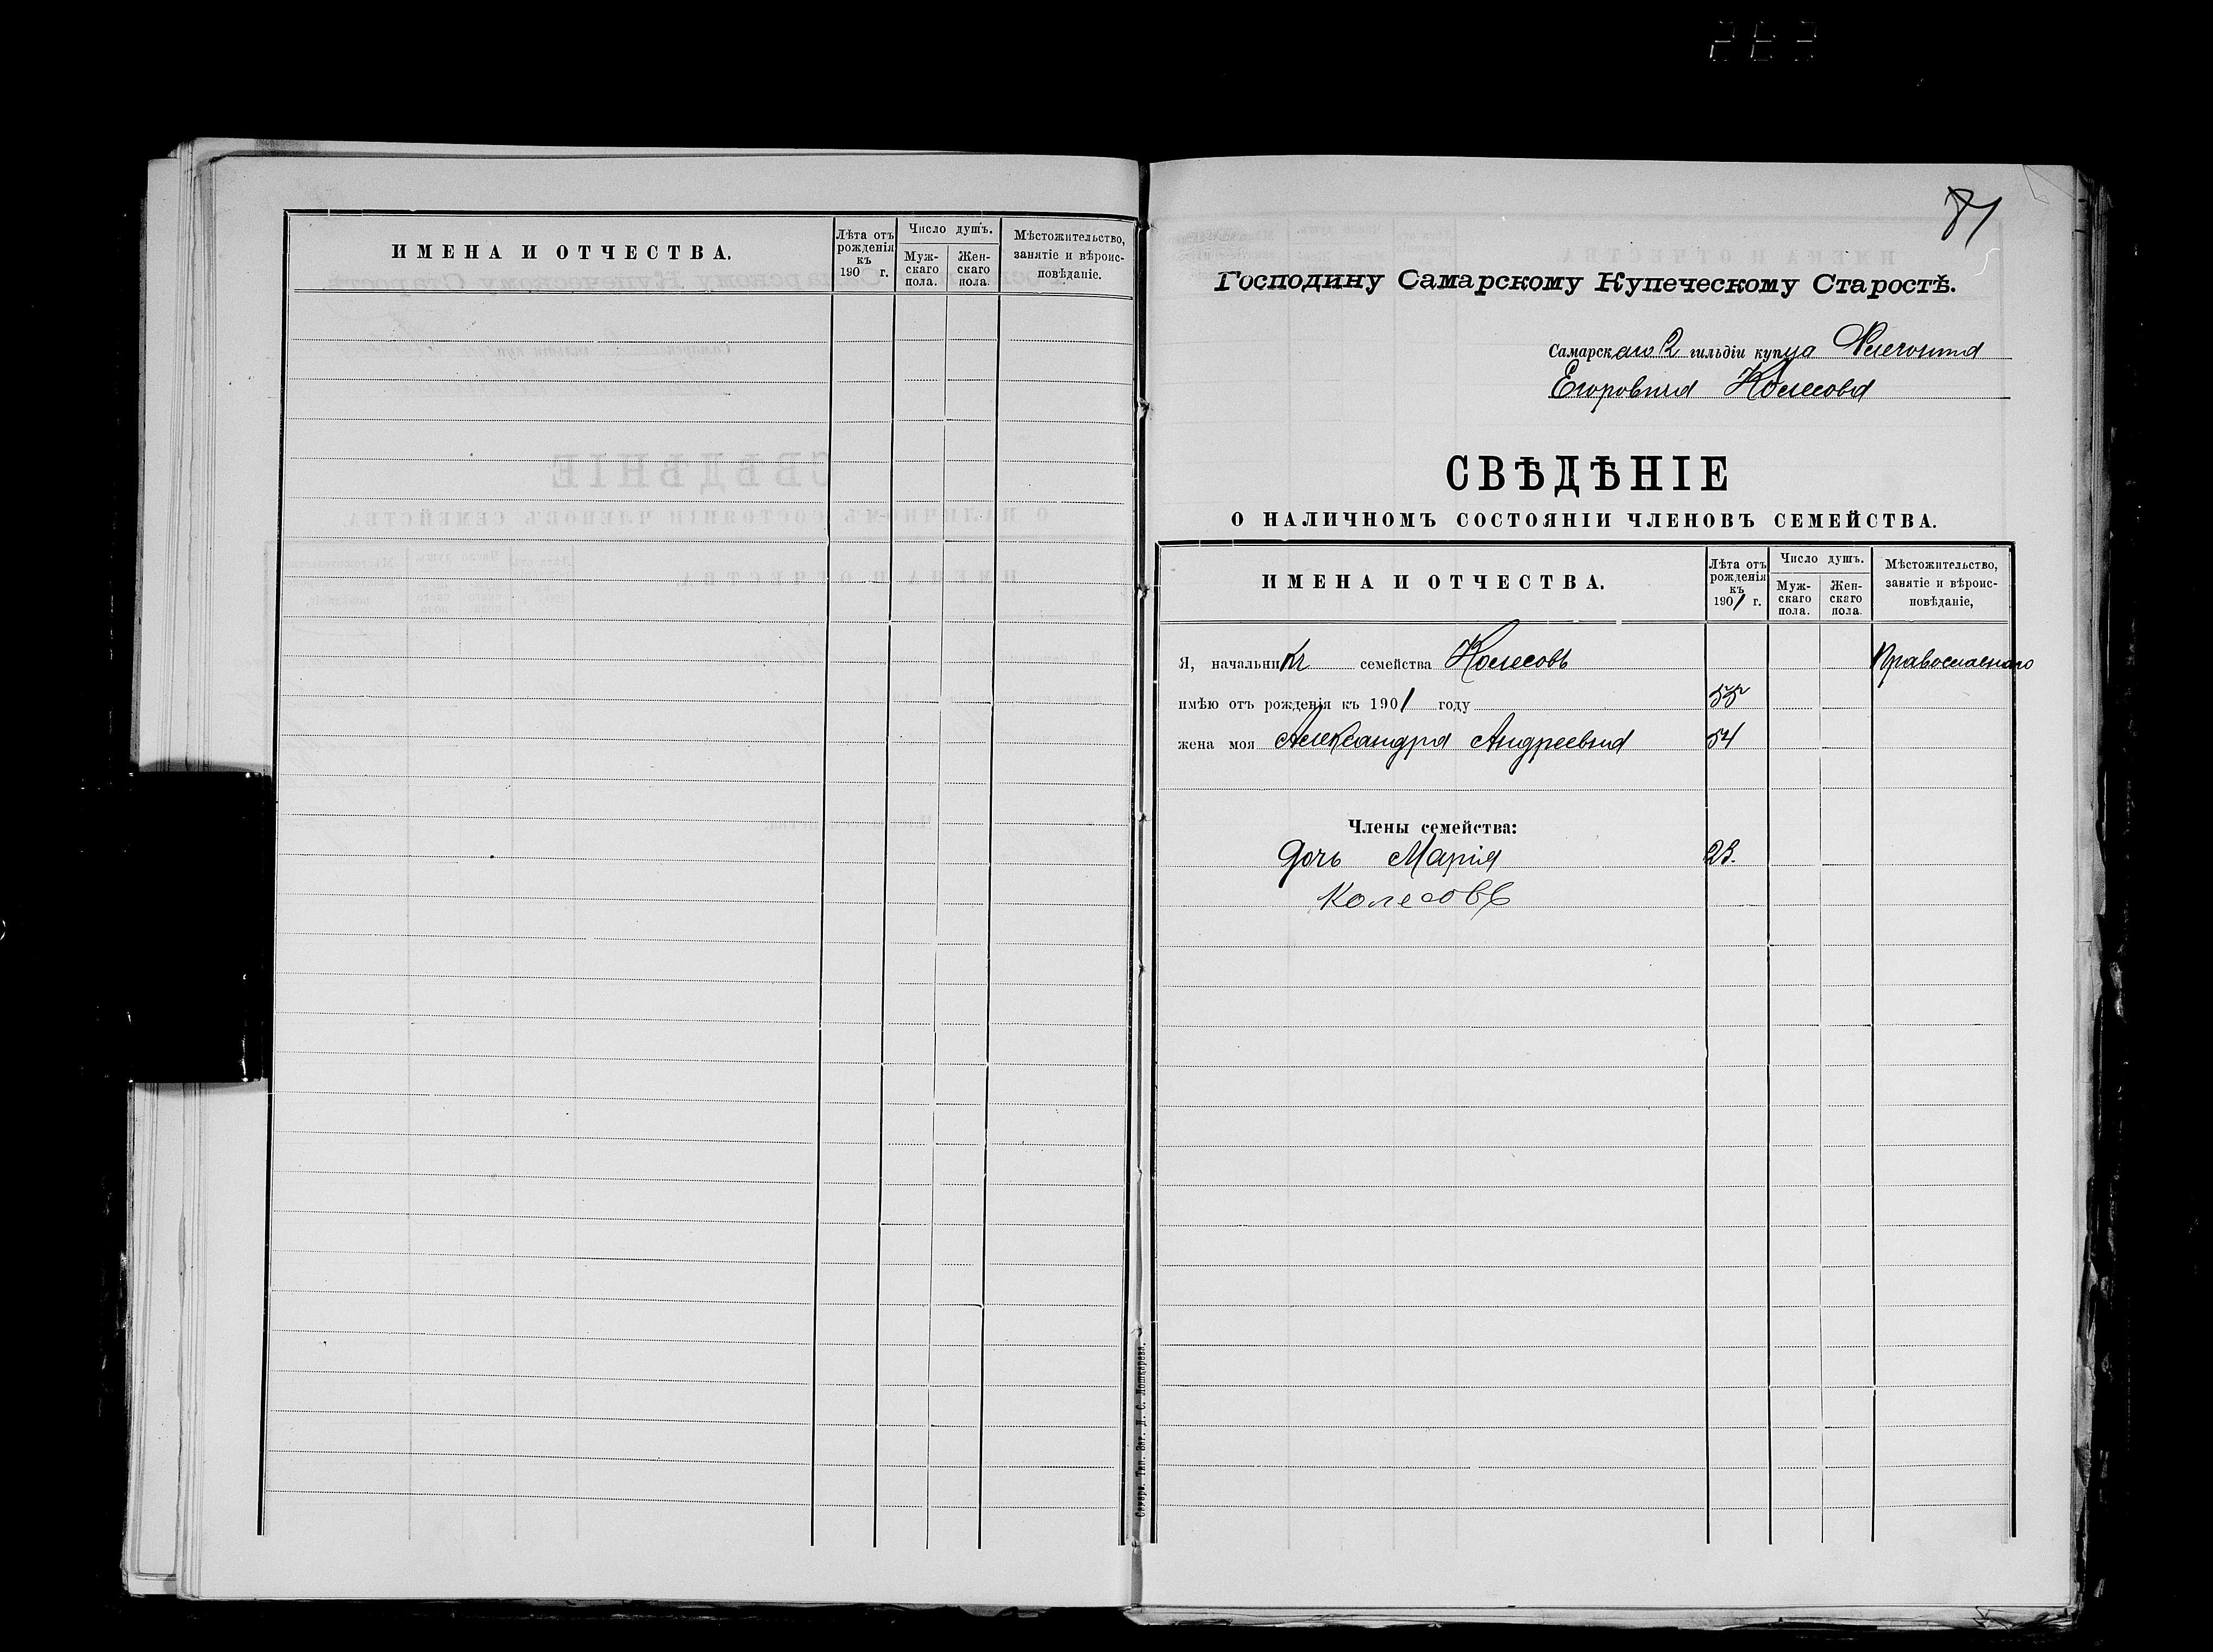 ИМЕНА И ОТЧЕСТВА.
Лѣта отъ рожденія къ 190 г.
Число душъ.
Муж-скаго пола.
Жен-скаго пола.
Мѣстожительство, занятіе и вѣроис-повѣданіе.
Самара. Тип. Заг. Д. С. Лошкарева.
81
Господину Самарскому Купеческому Старостѣ.
Самарскаго 2 гильдіи купца
Егоровича Колесова
СВѢДѢНІЕ
О НАЛИЧНОМЪ СОСТОЯНІИ ЧЛЕНОВЪ СЕМЕЙСТВА.
ИМЕНА И ОТЧЕСТВА.
Лѣта отъ рожденія къ 1901 г.
Число душъ.
Муж-скаго пола.
Жен-скаго пола.
Мѣстожительство, занятіе и вѣроис-повѣданіе,
Я, начальникъ семейства Колесовъ Православнаго
имѣю отъ рожденія къ 1901 году 55
жена моя Александра Андреевна 54
Члены семейства:
Дочь Марія 23.
Колесовъ